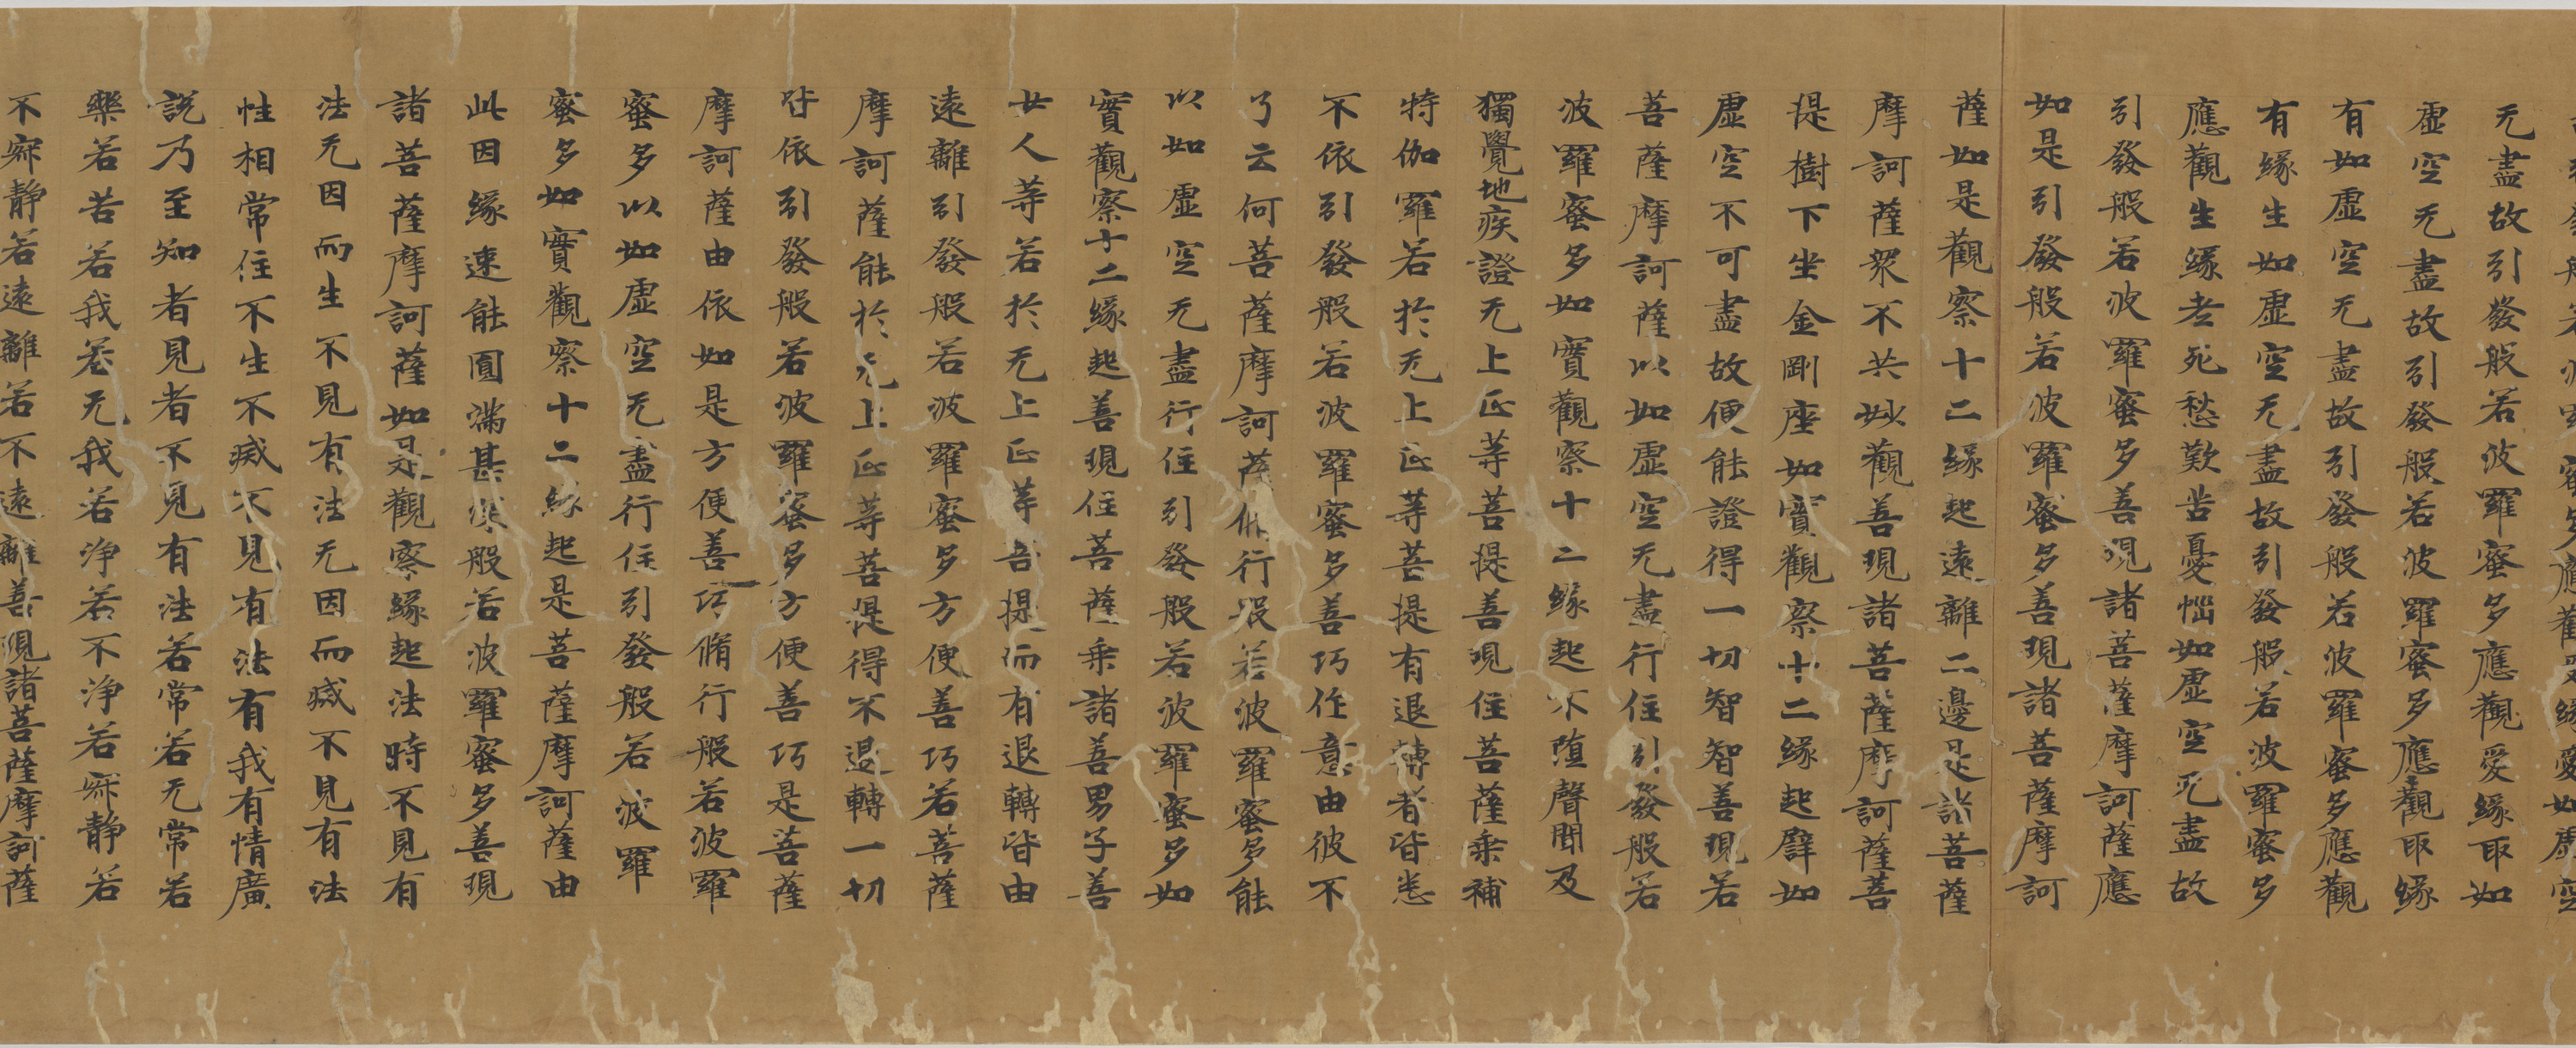 應觀受緣愛如虛空
无盡故引發般若波羅蜜多應觀愛緣取如
虛空无盡故引發般若波羅蜜多應觀取緣
有如虛空无盡故引發般若波羅蜜多應觀
有緣生如虛空无盡故引發般若波羅蜜多
應觀生緣老死愁歎苦憂惱如虛空无盡故
引發般若波羅蜜多善現諸菩薩摩訶薩應
如是引發般若波羅蜜多善現諸菩薩摩訶
薩如是觀察十二緣起遠離二邊是諸菩薩
摩訶薩衆不共妙觀善現諸菩薩摩訶薩菩
提樹下坐金剛座如實觀察十二緣起譬如
虛空不可盡故便能證得一切智智善現若
菩薩摩訶薩以如虛空无盡行住引發般若
波羅蜜多如實觀察十二緣起不墮聲聞及
獨覺地疾證无上正等菩提善現住菩薩乘補
特伽羅若於无上正等菩提有退轉者皆悉
不依引發般若波羅蜜多善巧作意由彼不
了云何菩薩摩訶薩脩行般若波羅蜜多能
以如虛空无盡行住引發般若波羅蜜多如
實觀察十二緣起善現住菩薩乘諸善男子善
女人等若於无上正等菩提而有退轉皆由
遠離引發般若波羅蜜多方便善巧若菩薩
摩訶薩能於无上正等菩提得不退轉一切
皆依引發般若波羅蜜多方便善巧是菩薩
摩訶薩由依如是方便善巧脩行般若波羅
蜜多以如虛空无盡行住引發般若波羅
蜜多如實觀察十二緣起是菩薩摩訶薩由
此因緣速能圓滿甚深般若波羅蜜多善現
諸菩薩摩訶薩如是觀察緣起法時不見有
法无因而生不見有法无因而滅不見有法
性相常住不生不滅不見有法有我有情廣
說乃至知者見者不見有法若常若无常若
樂若苦若我若无我若淨若不淨若寂靜若
不寂靜若遠離若不遠離善現諸菩薩摩訶薩